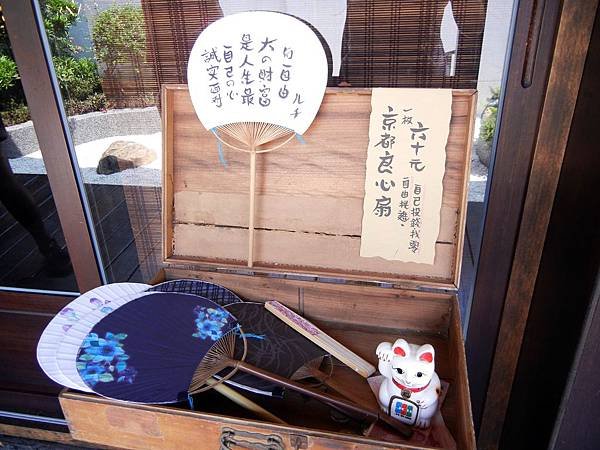 ルチ
勻一自由
大の財富
是人生最
自己の心
誠实面对
一枚 六十元
京都良心扇
自己投錢找零
自由挑選。